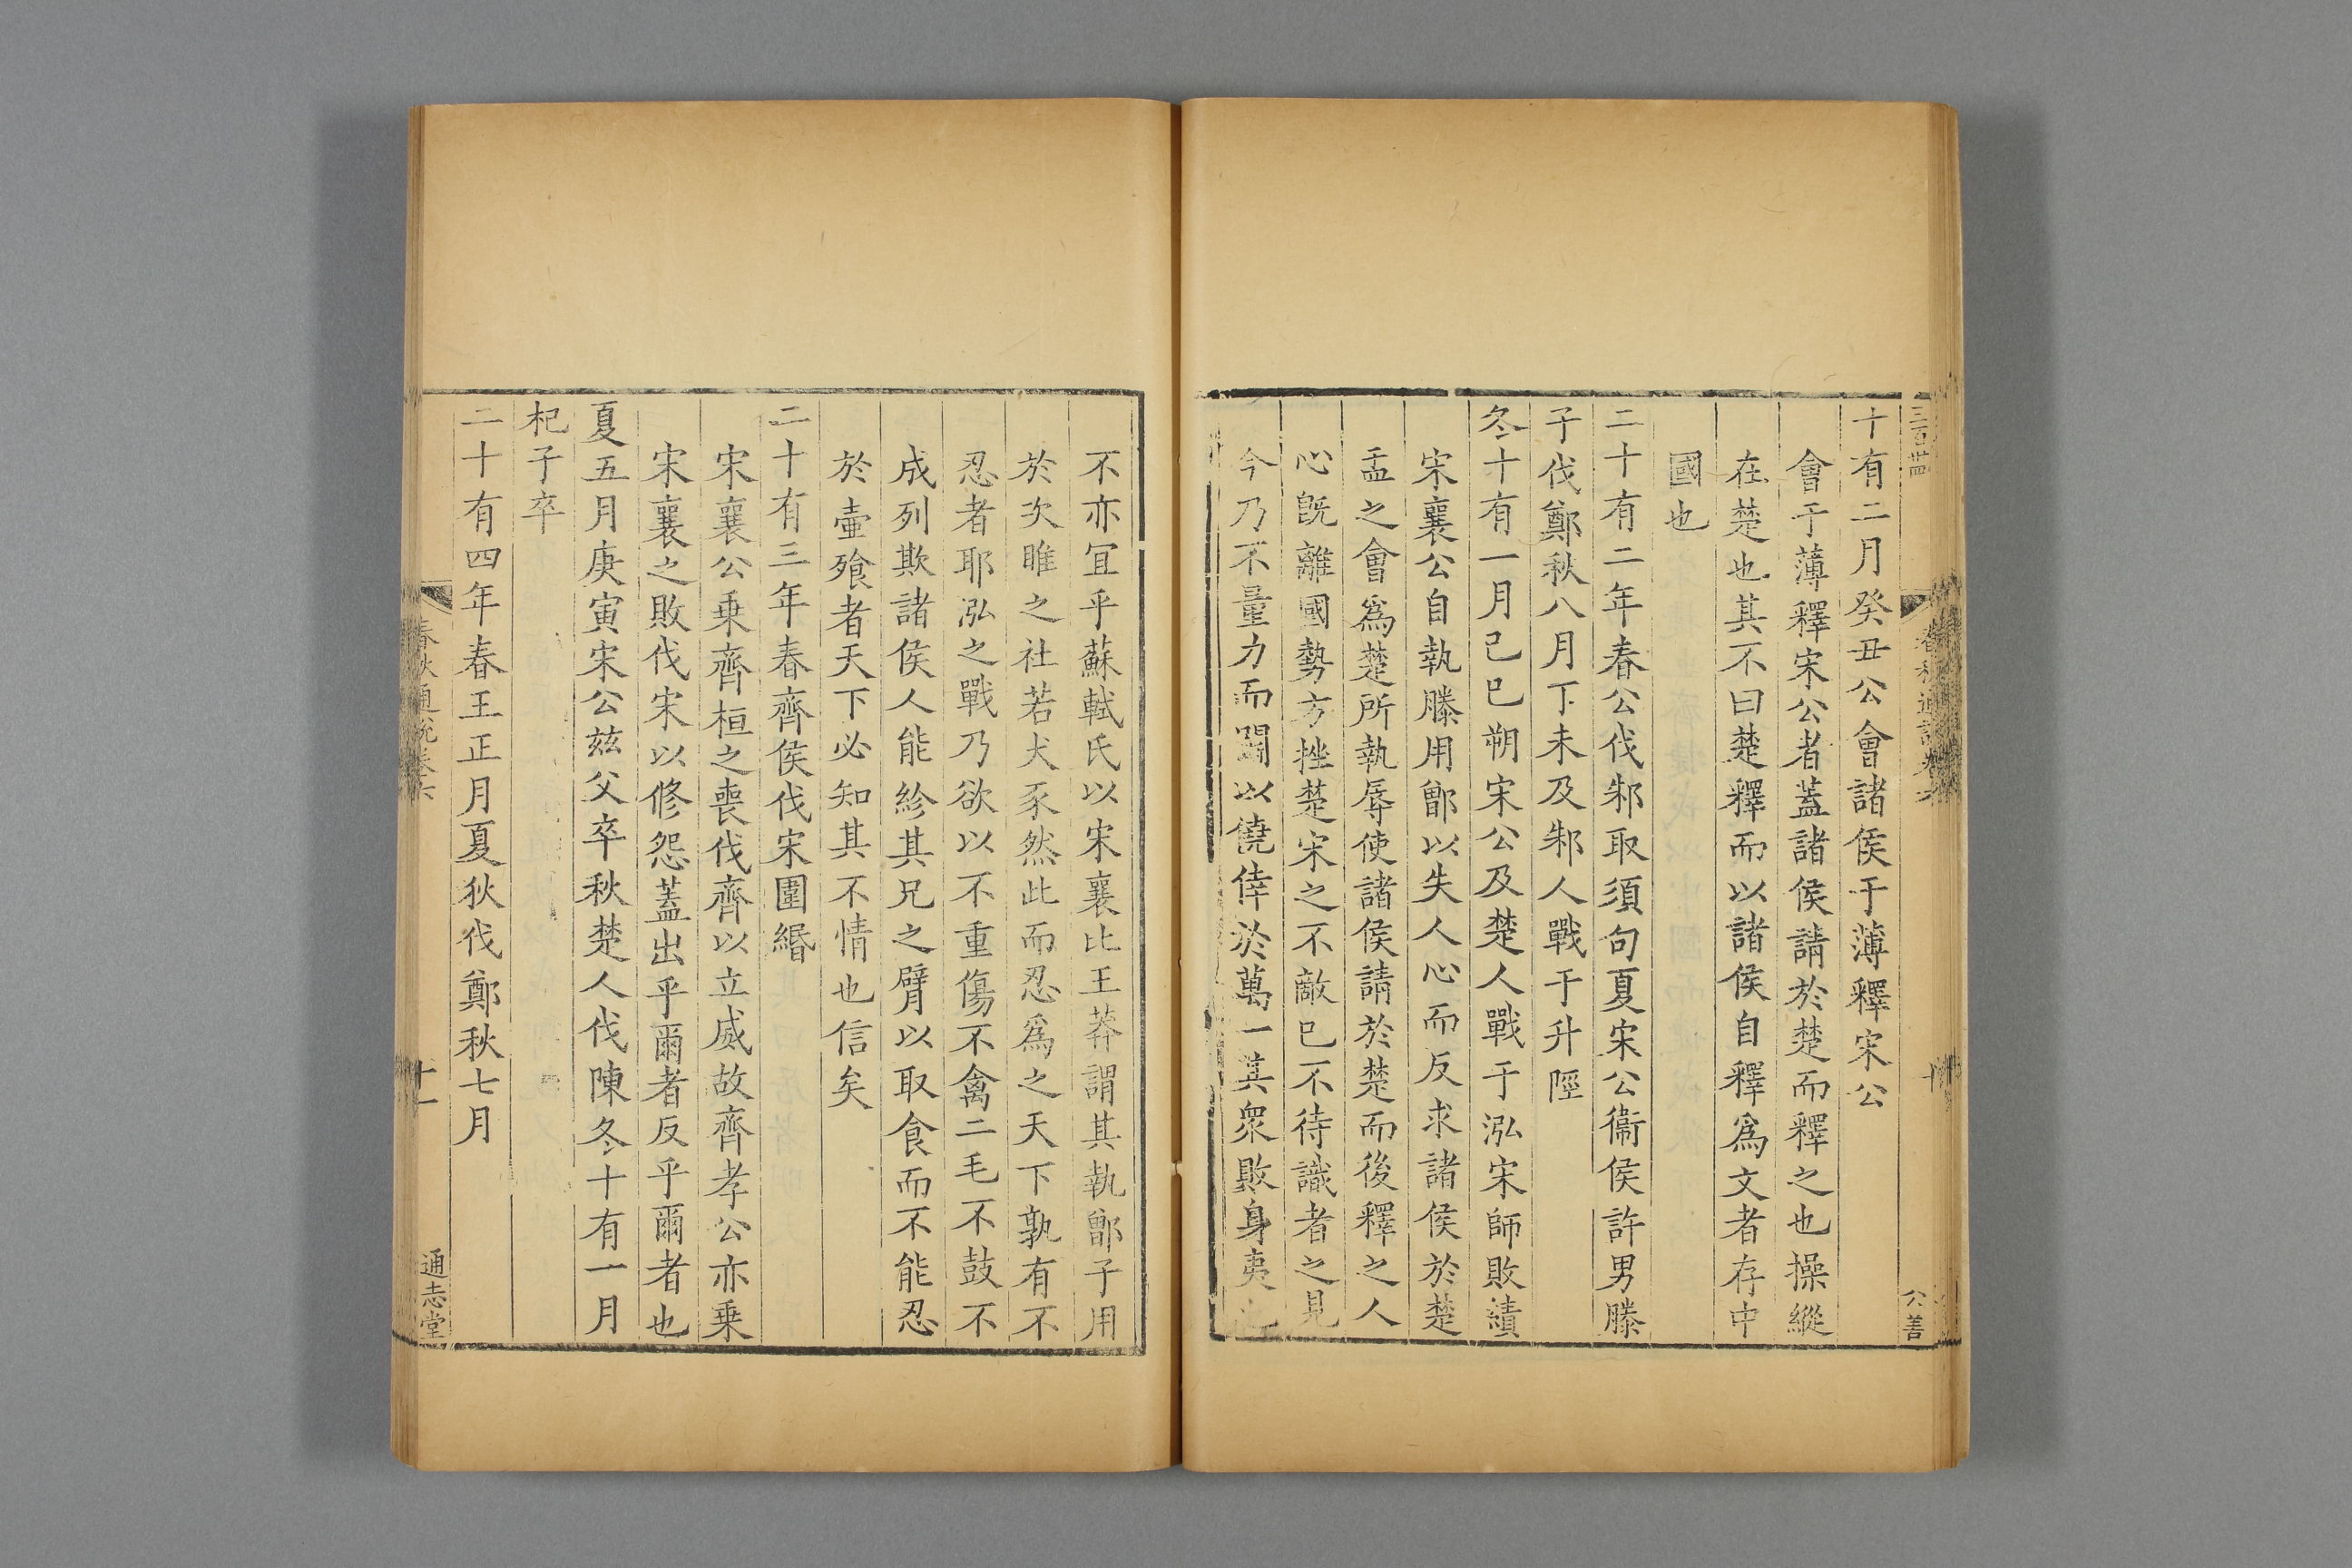 三百卌
十有二月癸丑公會諸侯于薄釋宋公
會于薄釋宋公者蓋諸侯請於楚而釋之也操縱
在楚也其不曰楚釋而以諸侯自釋爲文者存中
國也
二十有二年春公伐邾取須句夏宋公衞侯許男滕
子伐鄭秋八月丁未及邾人戰于升陘
冬十有一月己巳朔宋公及楚人戰于泓宋師敗績
宋襄公自執滕用鄫以失人心而反求諸侯於楚
盂之會爲楚所執辱使諸侯請於楚而後釋之人
心旣離國勢方挫楚宋之不敵已不待識者之見
今乃不量力而鬬以僥倖於萬一其衆敗身夷也
春秋通說卷六
十
公善
不亦宜乎蘇軾氏以宋襄比王莽謂其執鄫子用
於次睢之社若犬豕然此而忍爲之天下孰有不
忍者耶泓之戰乃欲以不重傷不禽二毛不鼓不
成列欺諸侯人能紾其兄之臂以取食而不能忍
於壷飱者天下必知其不情也信矣
二十有三年春齊侯伐宋圍緡
宋襄公乗齊桓之喪伐齊以立威故齊孝公亦乗
宋襄之敗伐宋以修怨蓋出乎爾者反乎爾者也
夏五月庚寅宋公兹父卒秋楚人伐陳冬十有一月
杞子卒
二十有四年春王正月夏狄伐鄭秋七月
春秋通說卷六
十一
通志堂